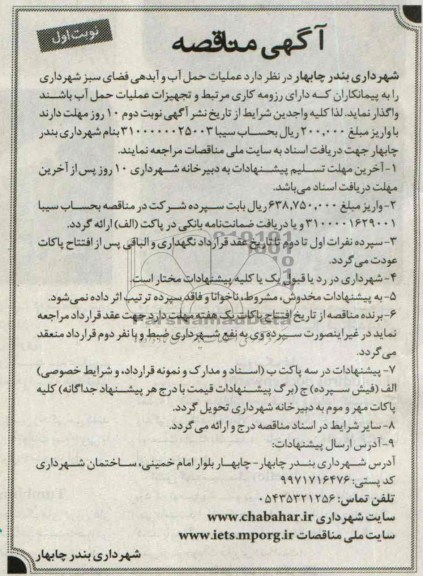 نوبت اول
آگهی مناقصه
شهرداری بندر چابهار در نظر دارد عملیات حمل آب و آبدهی فضای سبز شهرداری
را به پیمانکاران که دارای رزومه کاری مرتبط و تجهیزات عملیات حمل آب باشند
واگذار نماید. لذا کلیه واجدین شرایط از تاریخ نشر آگهی نوبت دوم ۱۰ روز مهلت دارند
با واریز مبلغ ۲۰۰,۰۰۰ ریال بحساب سیبا ۳۱۰۰۰۰۰۰۲۵۰۰۳ بنام شهرداری بندر
چابهار جهت دریافت اسناد به سایت ملی مناقصات مراجعه نمایند.
۱- آخرین مهلت تسلیم پیشنهادات به دبیرخانه شهرداری ۱۰ روز پس از آخرین
مهلت دریافت اسناد می‌باشد.
۲- واریز مبلغ ۶۳۸,۷۵۰,۰۰۰ ریال بابت سپرده شرکت در مناقصه بحساب سیبا
۳۱۰۰۰۰۱۶۲۹۰۰۱ و یا دریافت ضمانت‌نامه بانکی در پاکت (الف) ارائه گردد.
۳- سپرده نفرات اول تا دوم تا تاریخ عقد قرارداد نگهداری و الباقی پس از افتتاح پاکات
عودت می‌گردد.
۴- شهرداری در رد یا قبول یک یا کلیه پیشنهادات مختار است.
۵- به پیشنهادات مخدوش، مشروط، ناخوانا و فاقد سپرده ترتیب اثر داده نمی‌شود.
۶- برنده مناقصه از تاریخ افتتاح پاکات یک هفته مهلت دارد جهت عقد قرارداد مراجعه
نماید در غیر اینصورت سپرده وی به نفع شهرداری ضبط و با نفر دوم قرارداد منعقد
می‌گردد.
۷- پیشنهادات در سه پاکت ب (اسناد و مدارک و نمونه قرارداد، و شرایط خصوصی)
الف (فیش سپرده) ج (برگ پیشنهادات قیمت با درج هر پیشنهاد جداگانه) کلیه
پاکات مهر و موم به دبیرخانه شهرداری تحویل گردد.
۸- سایر شرایط در اسناد مناقصه درج و ارائه می‌گردد.
۹- آدرس ارسال پیشنهادات:
آدرس شهرداری بندر چابهار - چابهار بلوار امام خمینی، ساختمان شهرداری
کد پستی: ۹۹۷۱۷۱۶۴۷۶
تلفن تماس: ۰۵۴۳۵۳۲۱۲۵۶
سایت شهرداری www.chabahar.ir
سایت ملی مناقصات www.iets.mporg.ir
شهرداری بندر چابهار